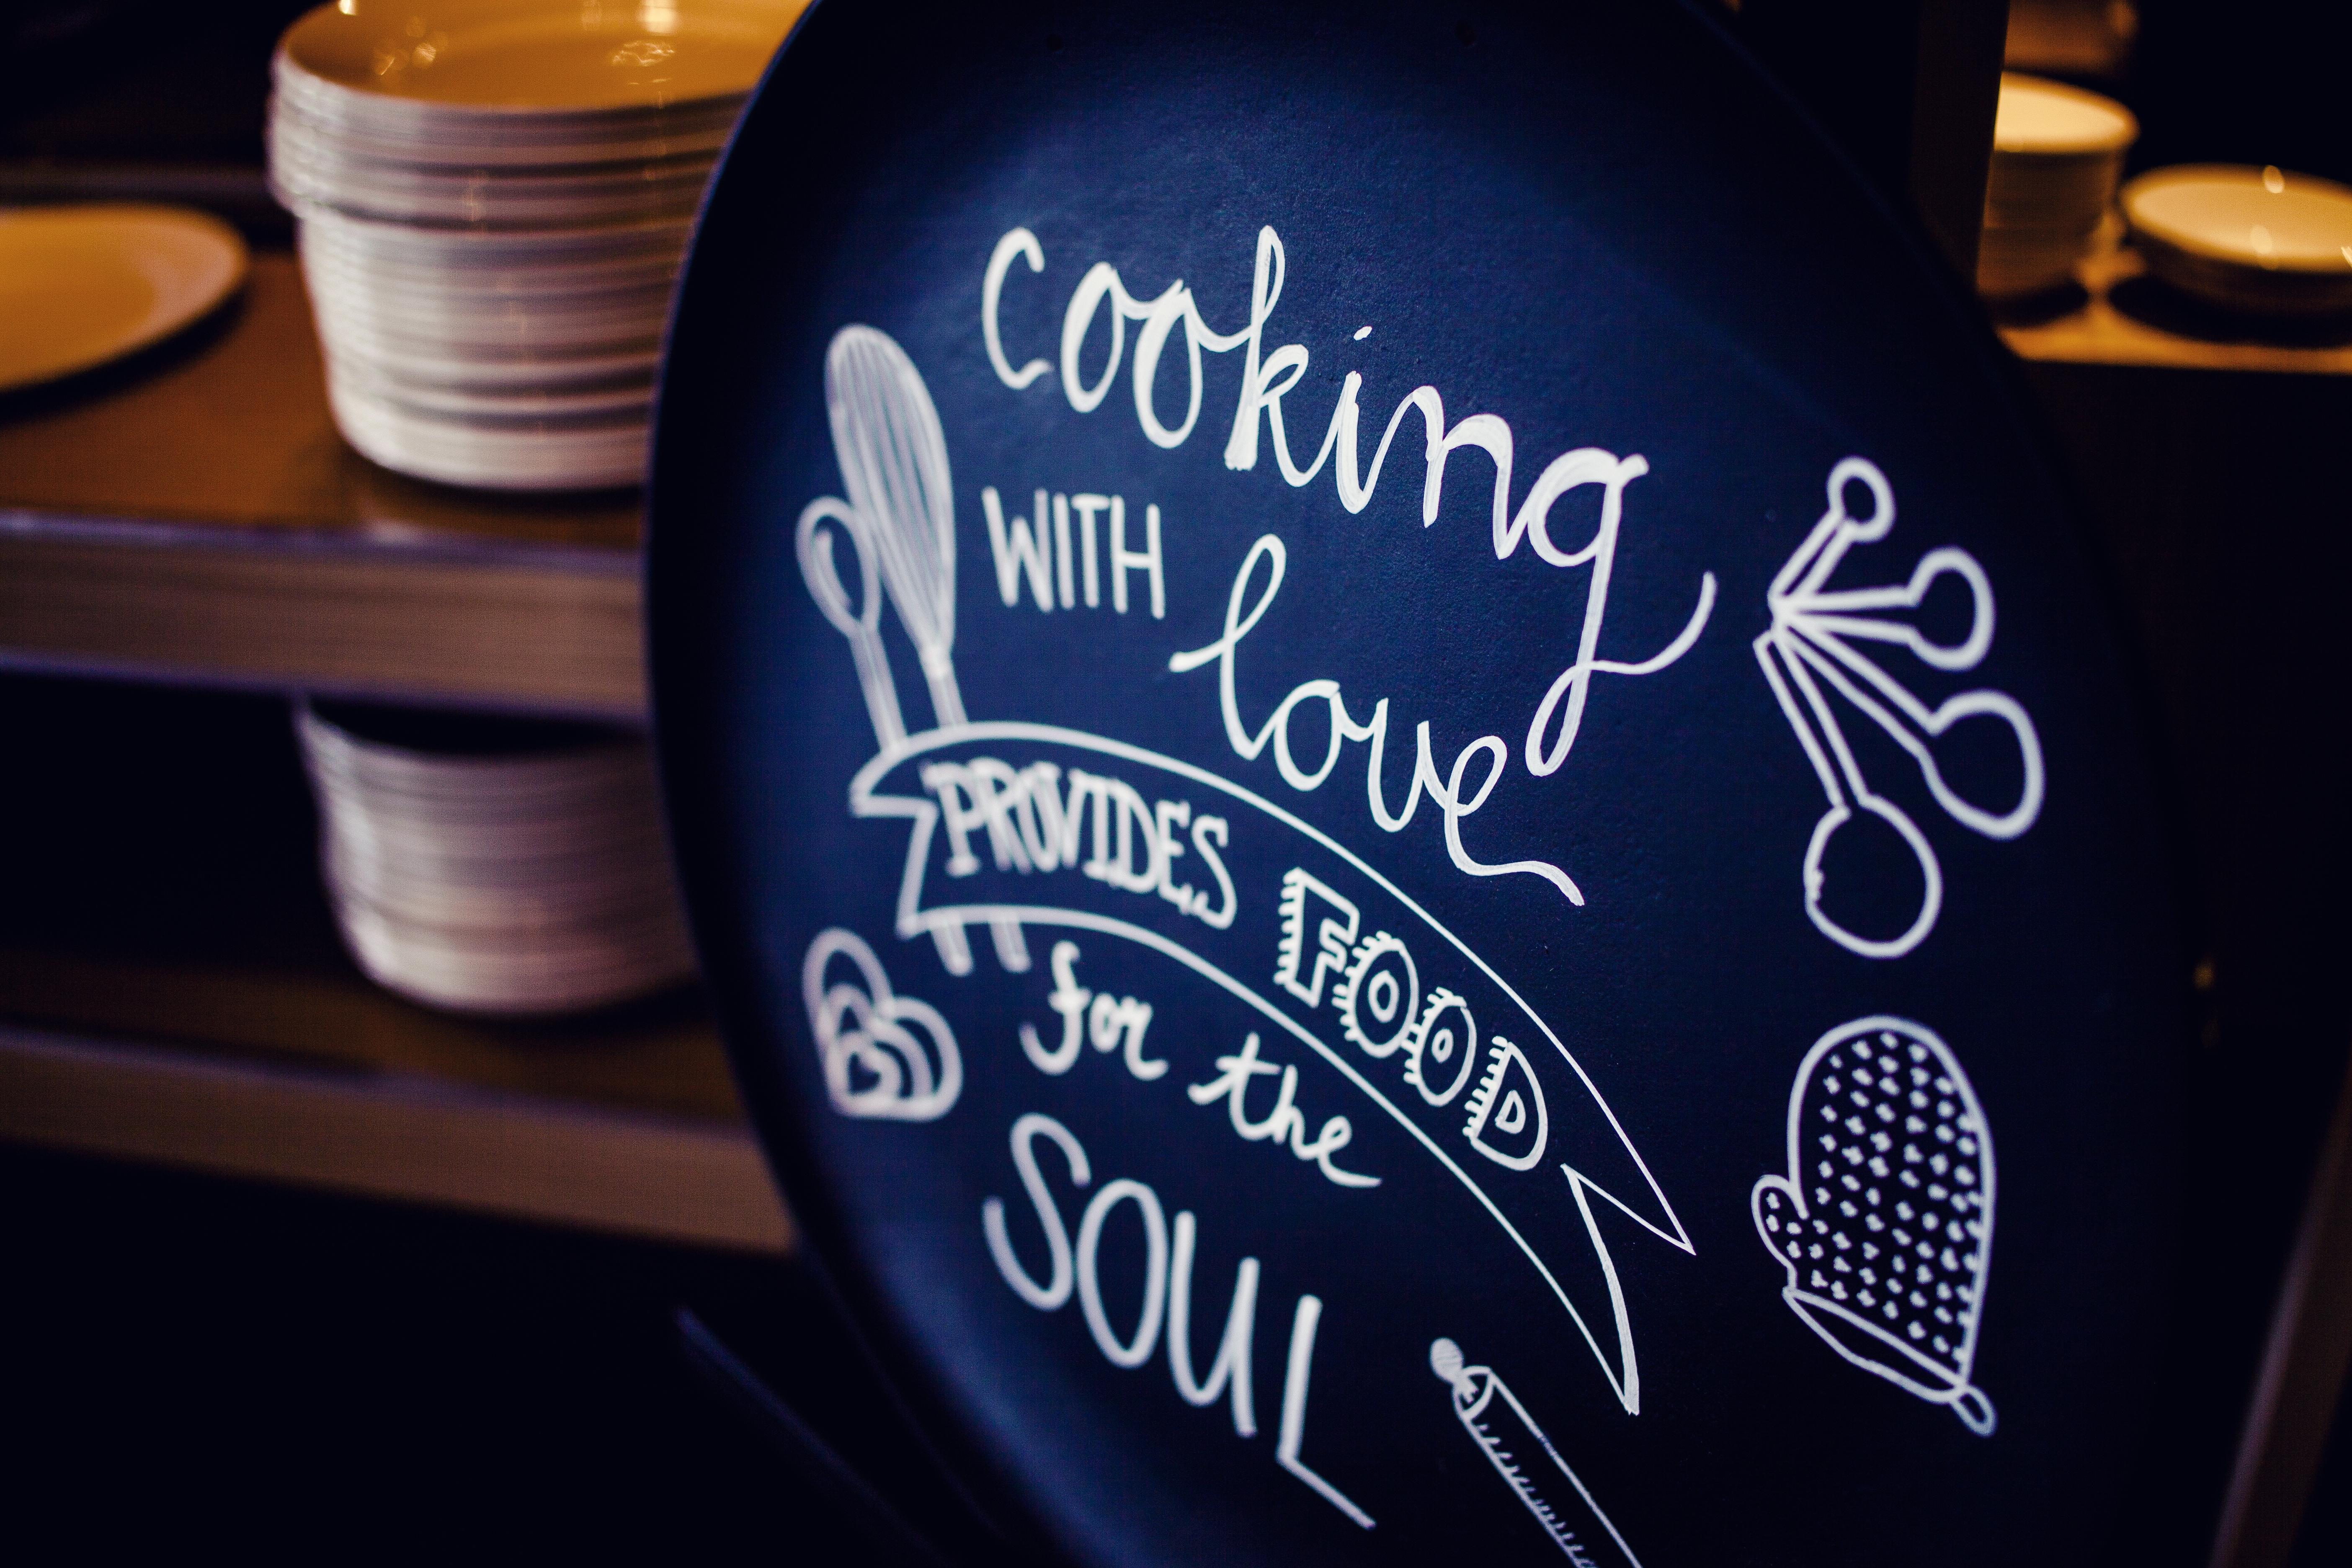 cooking
WITH love
PROVIDES FOOD
for the
SOUL